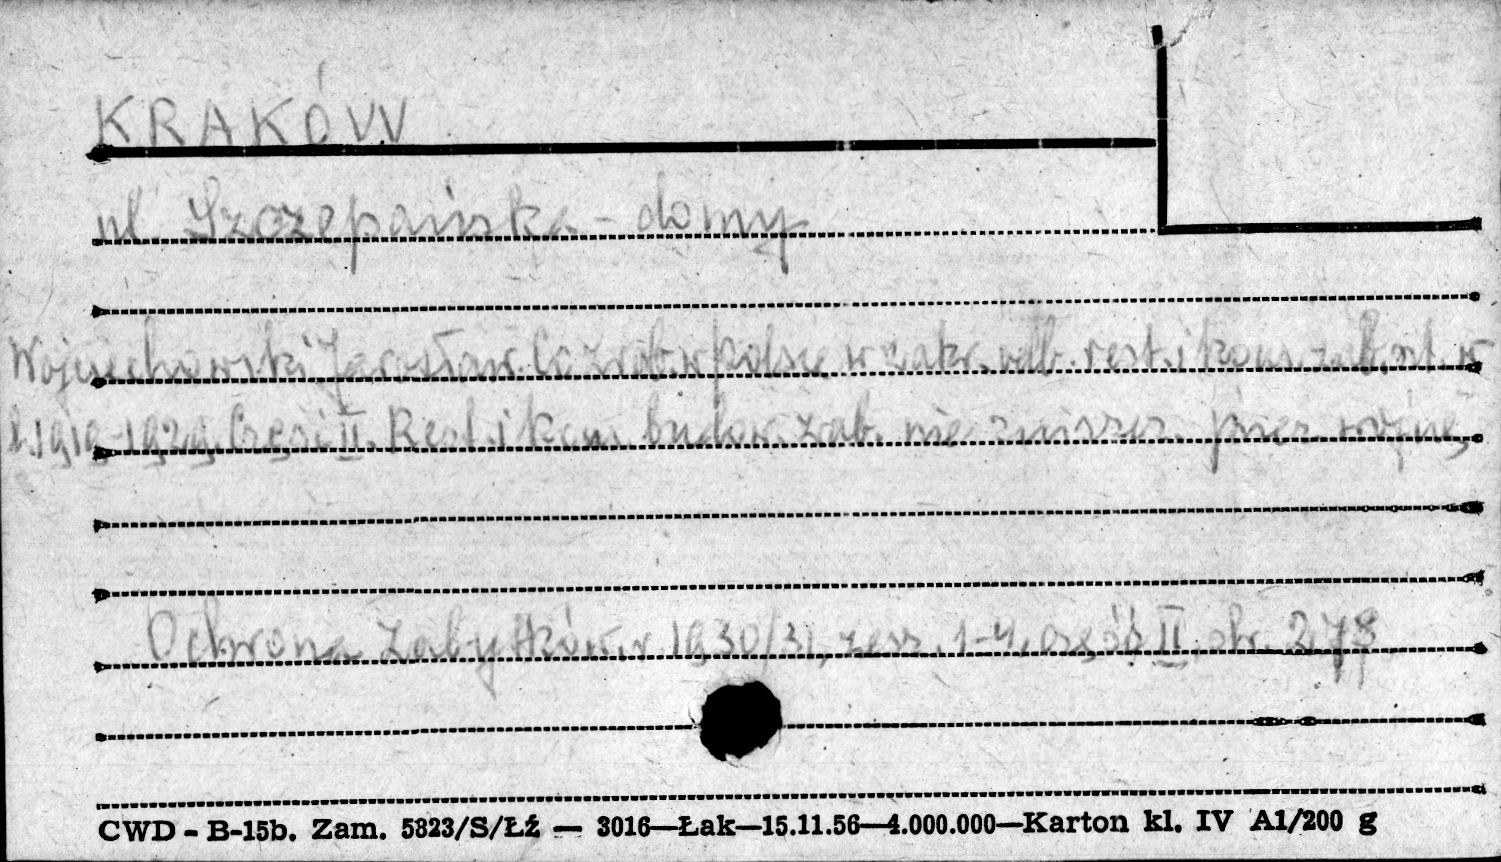 KRAKÓW
ul. Szczepańska - domy
Wojciechowski Jarosław. Co zrob. w Polsce w zakr. odb. rest. i kons. zab. szt. w
l. 1919-1929. Część II. Rest. i kons. budow. zab. nie zniszcz. przez wojnę
Ochrona Zabytków. r. 1930/31, zesz. 1-4, część II, str. 278
CWD - B-15b. Zam. 5823/S/Łź — 3016—Łak—15.11.56—4.000.000—Karton kl. IV A1/200 g